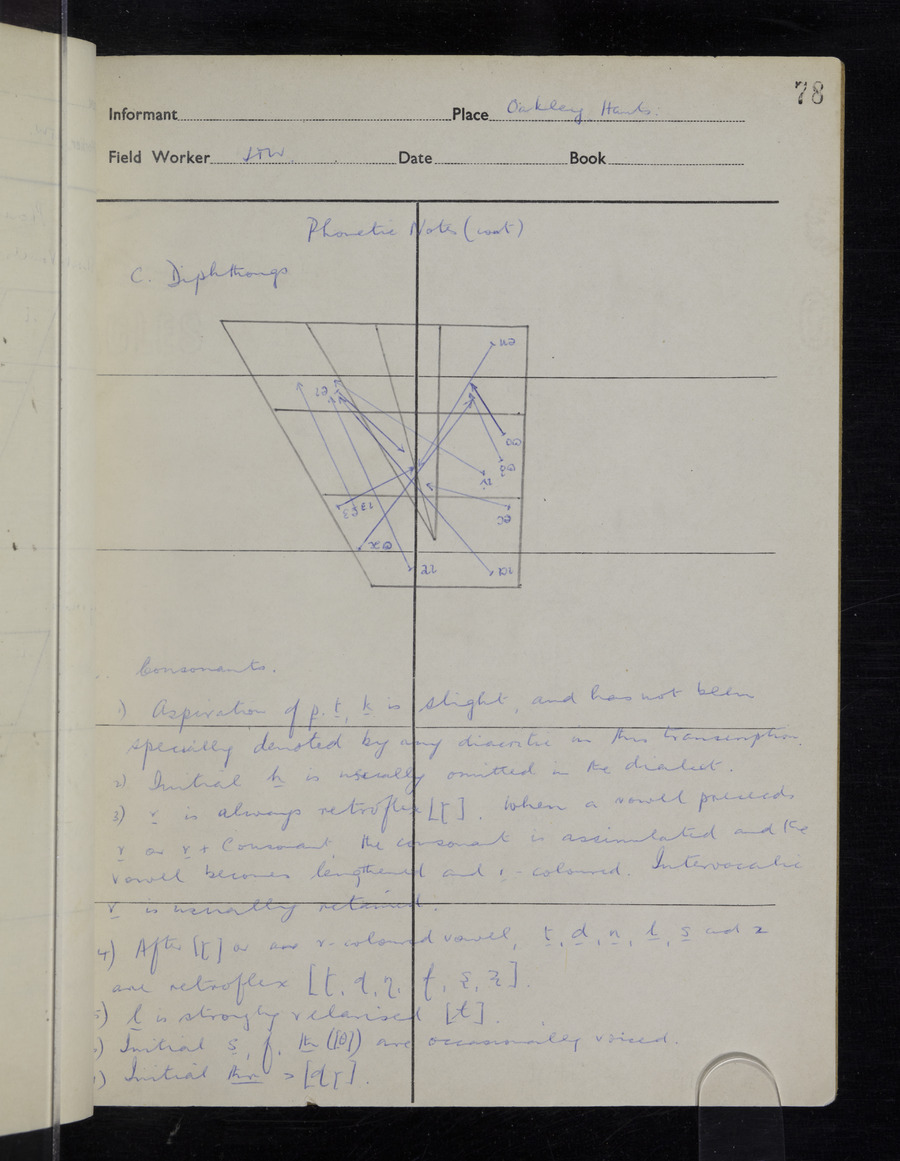 78
Informant Place Oakley, Hants.
Field Worker Date Book
Phonetic Notes (cont)
C. Diphthongs
Consonants.
1) Aspiration of p, t, k is slight, and has not been
specially denoted by any diacritic in this transcription.
2) Initial h is usually omitted in the dialect.
3) r is always retroflex [ɽ]. When a vowel precedes
r or r + Consonant, the consonant is assimilated and the
vowel becomes lengthened and r-coloured. Intervocalic
r is usually retained.
4) After [ɽ] or an r-coloured vowel, t, d, n, l, s and z
are retroflex [ʈ, ɖ, ɳ, ɭ, ʂ, ʐ].
5) l is strongly velarised [ɫ].
6) Initial s, f, th ([θ]) are occasionally voiced.
7) Initial thr > [dɽ].